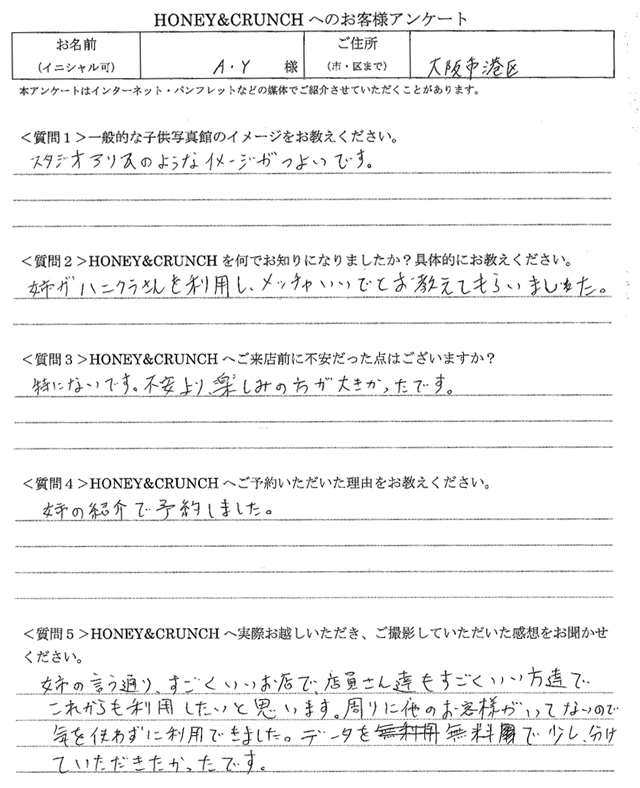 HONEY&CRUNCH へのお客様アンケート
お名前
(イニシャル可)
A・Y 様
ご住所
(市・区まで)
大阪市港区
本アンケートはインターネット・パンフレットなどの媒体でご紹介させていただくことがあります。
＜質問１＞一般的な子供写真館のイメージをお教えください。
スタジオアリスのようなイメージがつよいです。
＜質問２＞HONEY&CRUNCH を何でお知りになりましたか？具体的にお教えください。
姉がハニクラさんを利用し、メッチャいいでとお教えてもらいました。
＜質問３＞HONEY&CRUNCH へご来店前に不安だった点はございますか？
特にないです。不安より、楽しみの方が大きかったです。
＜質問４＞HONEY&CRUNCH へご予約いただいた理由をお教えください。
姉の紹介で予約しました。
＜質問５＞HONEY&CRUNCH へ実際お越しいただき、ご撮影していただいた感想をお聞かせ
ください。
姉の言う通り、すごくいいお店で、店員さん達もすごくいい方達で
これからも利用したいと思います。周りに他のお客様がいてないので
気を使わずに利用できました。データを無料で少し、分け
ていただきたかったです。